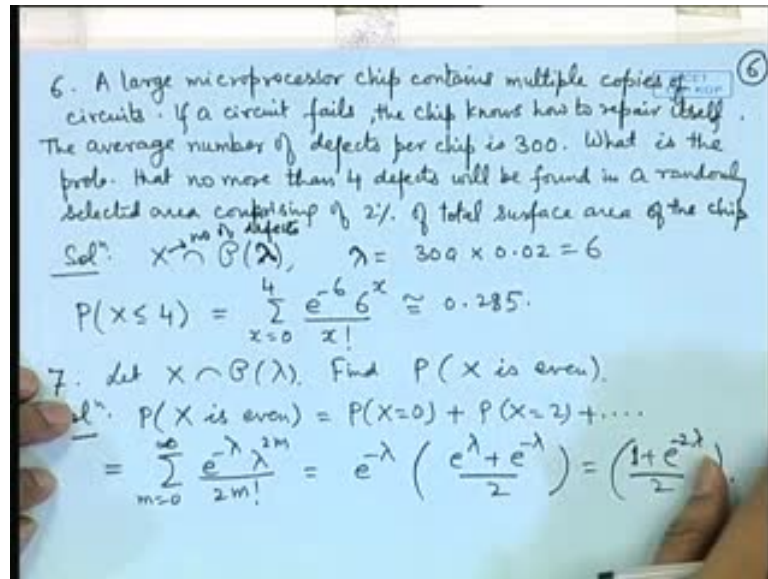 6. A large microprocessor chip contains multiple copies of
circuits. If a circuit fails, the chip knows how to repair itself.
The average number of defects per chip is 300. What is the
prob. that no more than 4 defects will be found in a randomly
selected area comprising of 2% of total surface area of the chip
Solⁿ. X → no of defects ∩ P(λ), λ = 300 × 0.02 = 6
P(X ≤ 4) = ∑_{x=0}^{4} e^{-6} 6^x / x! ≅ 0.285.
7. Let X ∩ P(λ). Find P(X is even).
Solⁿ. P(X is even) = P(X=0) + P(X=2) + ....
= ∑_{m=0}^{∞} e^{-λ} λ^{2m} / 2m! = e^{-λ} ( (e^{λ} + e^{-λ}) / 2 ) = ( (1 + e^{-2λ}) / 2 ).
6